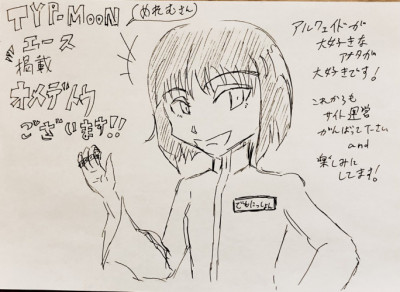 TYPE-MOON
(めれむさん)
エース
掲載
オメデトウ
ございます!!
アルクェイドが
大好きな
アナタが
大好きです!
これからも
サイト運営
がんばって下さい
and
楽しみに
してます!
でもにっしょん